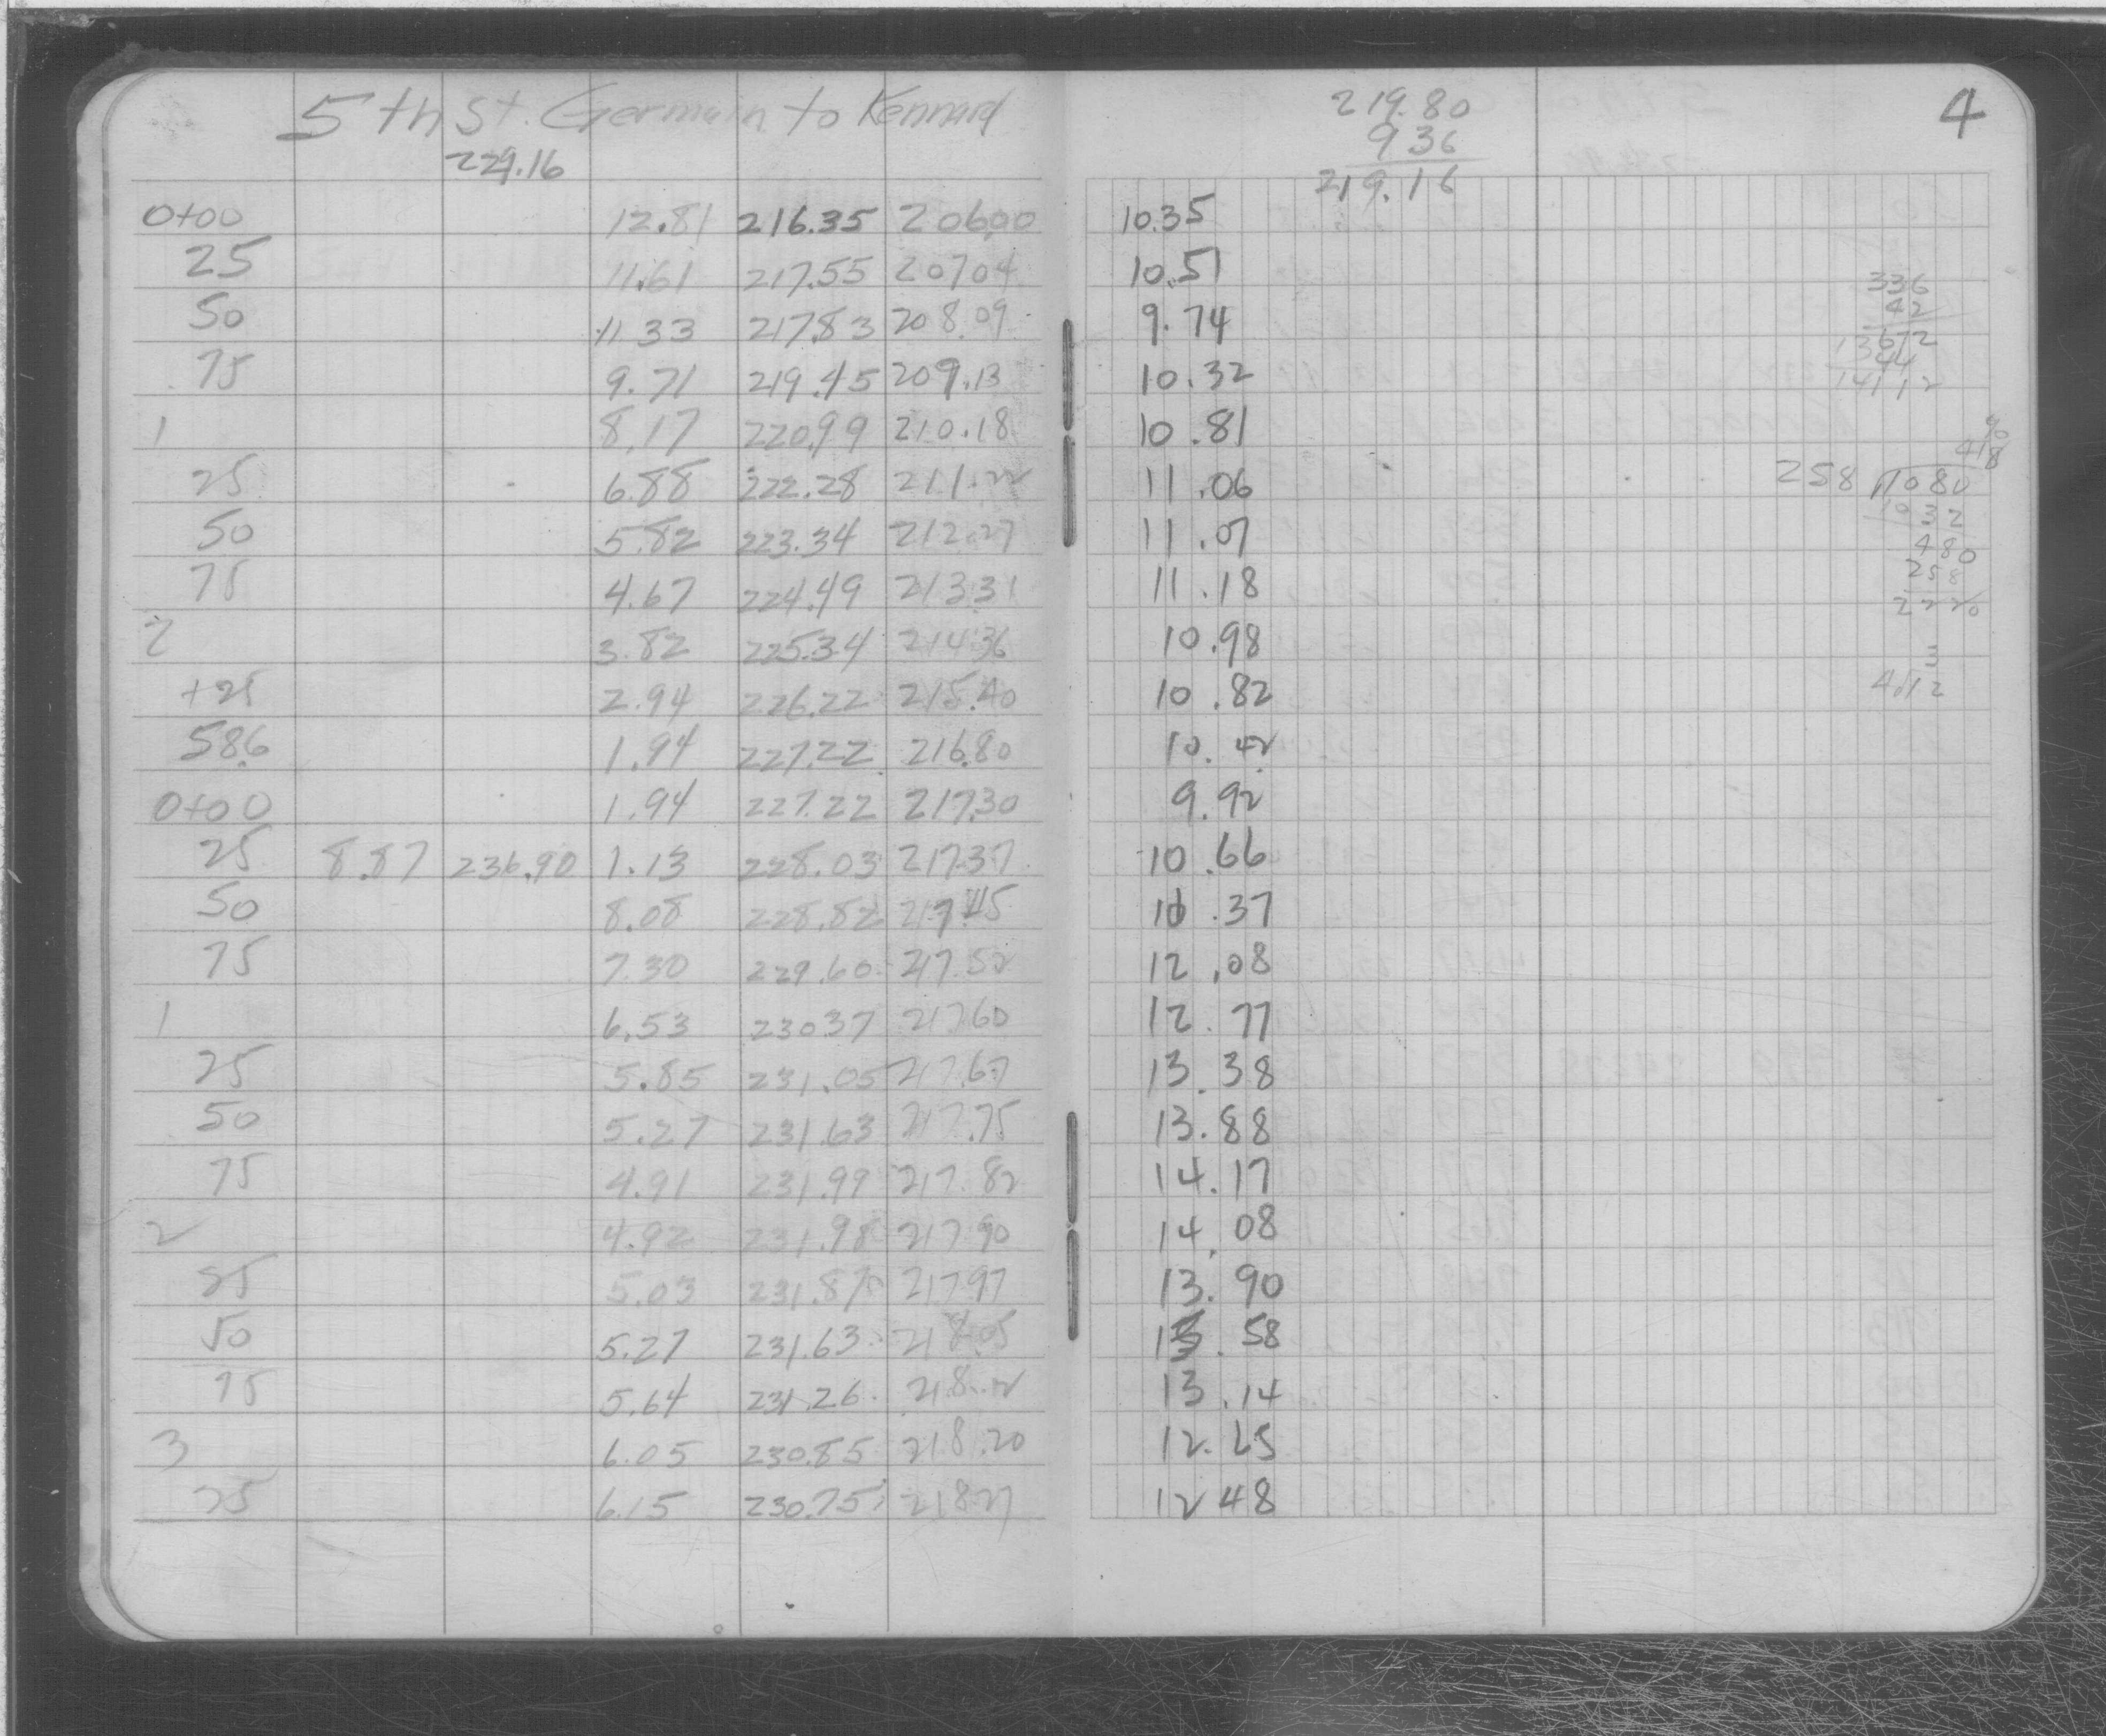 5th St. Germain to Kennard
229.16
0+00 12.81 216.35 206.00
25 11.61 217.55 20704
50 11.33 217.83 208.09
75 9.71 219.45 209.13
1 8.17 220.99 210.18
25 6.88 222.28 211.22
50 5.82 223.34 212.27
75 4.67 224.49 213.31
2 3.82 225.34 214.36
+25 2.94 226.22 215.40
58.6 1.94 227.22 216.80
0+00 1.94 227.22 217.30
25 8.87 236.90 1.13 228.03 217.37
50 8.08 228.82 217.45
75 7.30 229.60 217.52
1 6.53 230.37 217.60
25 5.85 231.05 217.67
50 5.27 231.63 217.75
75 4.91 231.99 217.82
2 4.92 231.98 217.90
25 5.03 231.87 217.97
50 5.27 231.63 218.05
75 5.64 231.26 218.12
3 6.05 230.85 218.20
25 6.15 230.75 218.27
4
219.80
9 36
219.16
10.35
10.51
9.74
10.32
10.81
11.06
11.07
11.18
10.98
10.82
10.42
9.92
10.66
11.37
12.08
12.77
13.38
13.88
14.17
14.08
13.90
13.58
13.14
12.65
12 48
336
42
672
1344
14112
418
258 1080
1032
480
258
2220
3
4.12